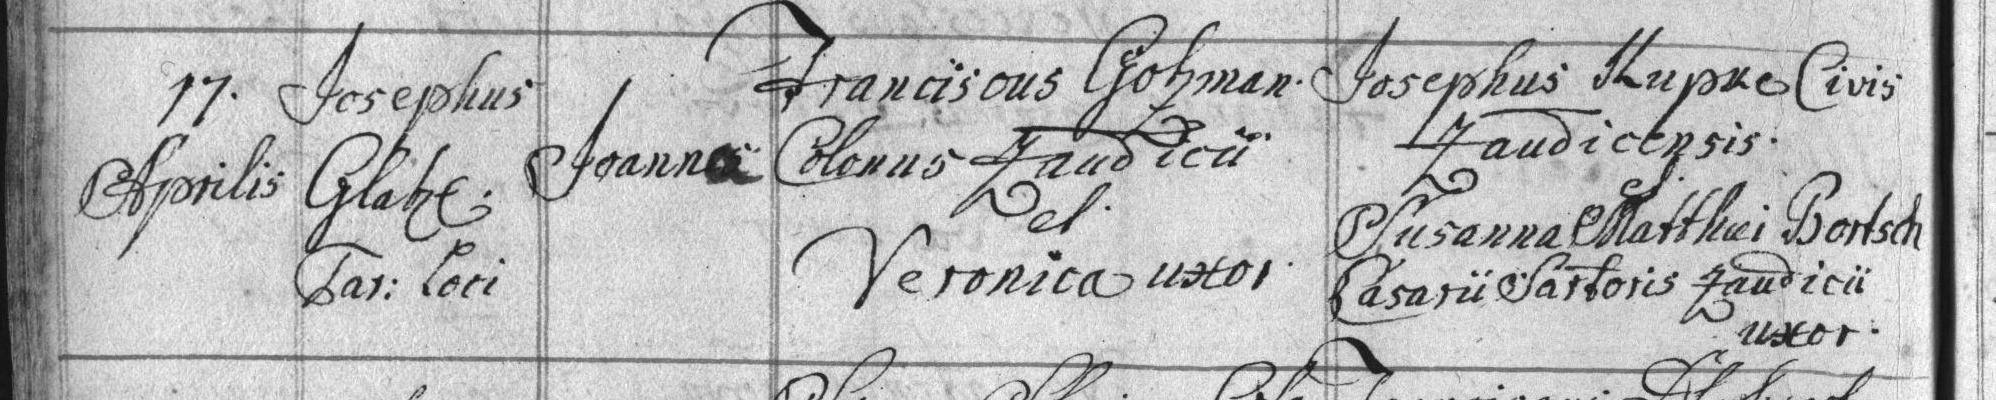 17.
Aprilis
Josephus
Glatze:
Par: Loci
Joannes
Franciscus Gotzman.
Colonus Zaudicii
et
Veronica uxor.
Josephus Kupke Civis
Zaudicensis.
Susanna Matthaei Bortsch
Casarii Sartoris Zaudicii
uxor.